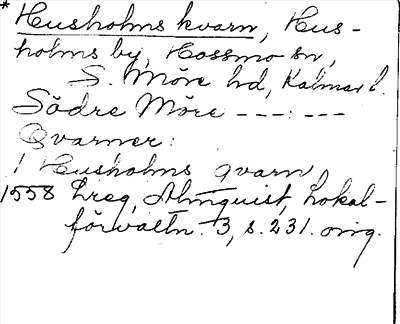 * Husholms kvarn, Hus-
holms by, Hossmo sn,
S. Möre hd, Kalmar l.
Södre Möre ---:---
Qvarner:
1 Husholms qvarn
1558 Lreg, Almquist, Lokal-
förvaltn. 3, s. 231. orig.